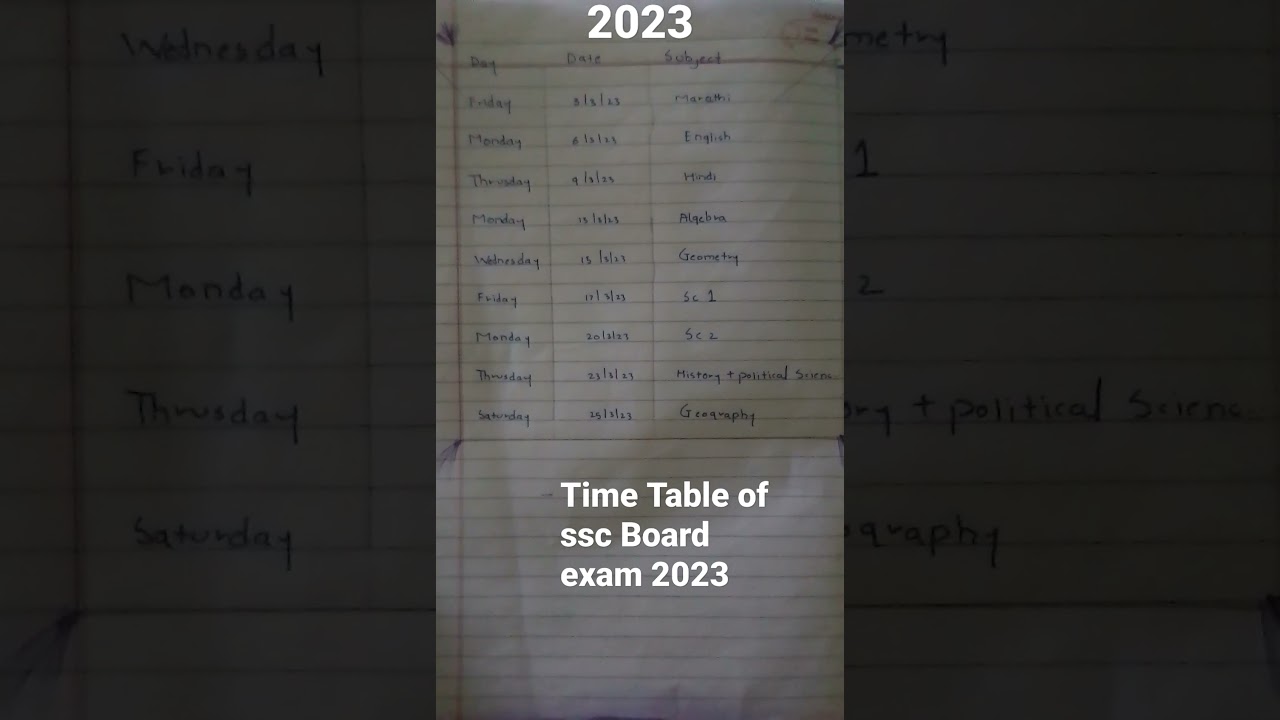 2023
Day Date Subject
Friday 3/3/23 Marathi
Monday 6/3/23 English
Thrusday 9/3/23 Hindi
Monday 13/3/23 Algebra
Wednesday 15/3/23 Geometry
Friday 17/3/23 Sc 1
Monday 20/3/23 Sc 2
Thrusday 23/3/23 History + political Scienc
Saturday 25/3/23 Geography
Time Table of
ssc Board
exam 2023
Wednesday metry
Friday 1
Monday 2
Thrusday ry + political Scienc
Saturday graphy